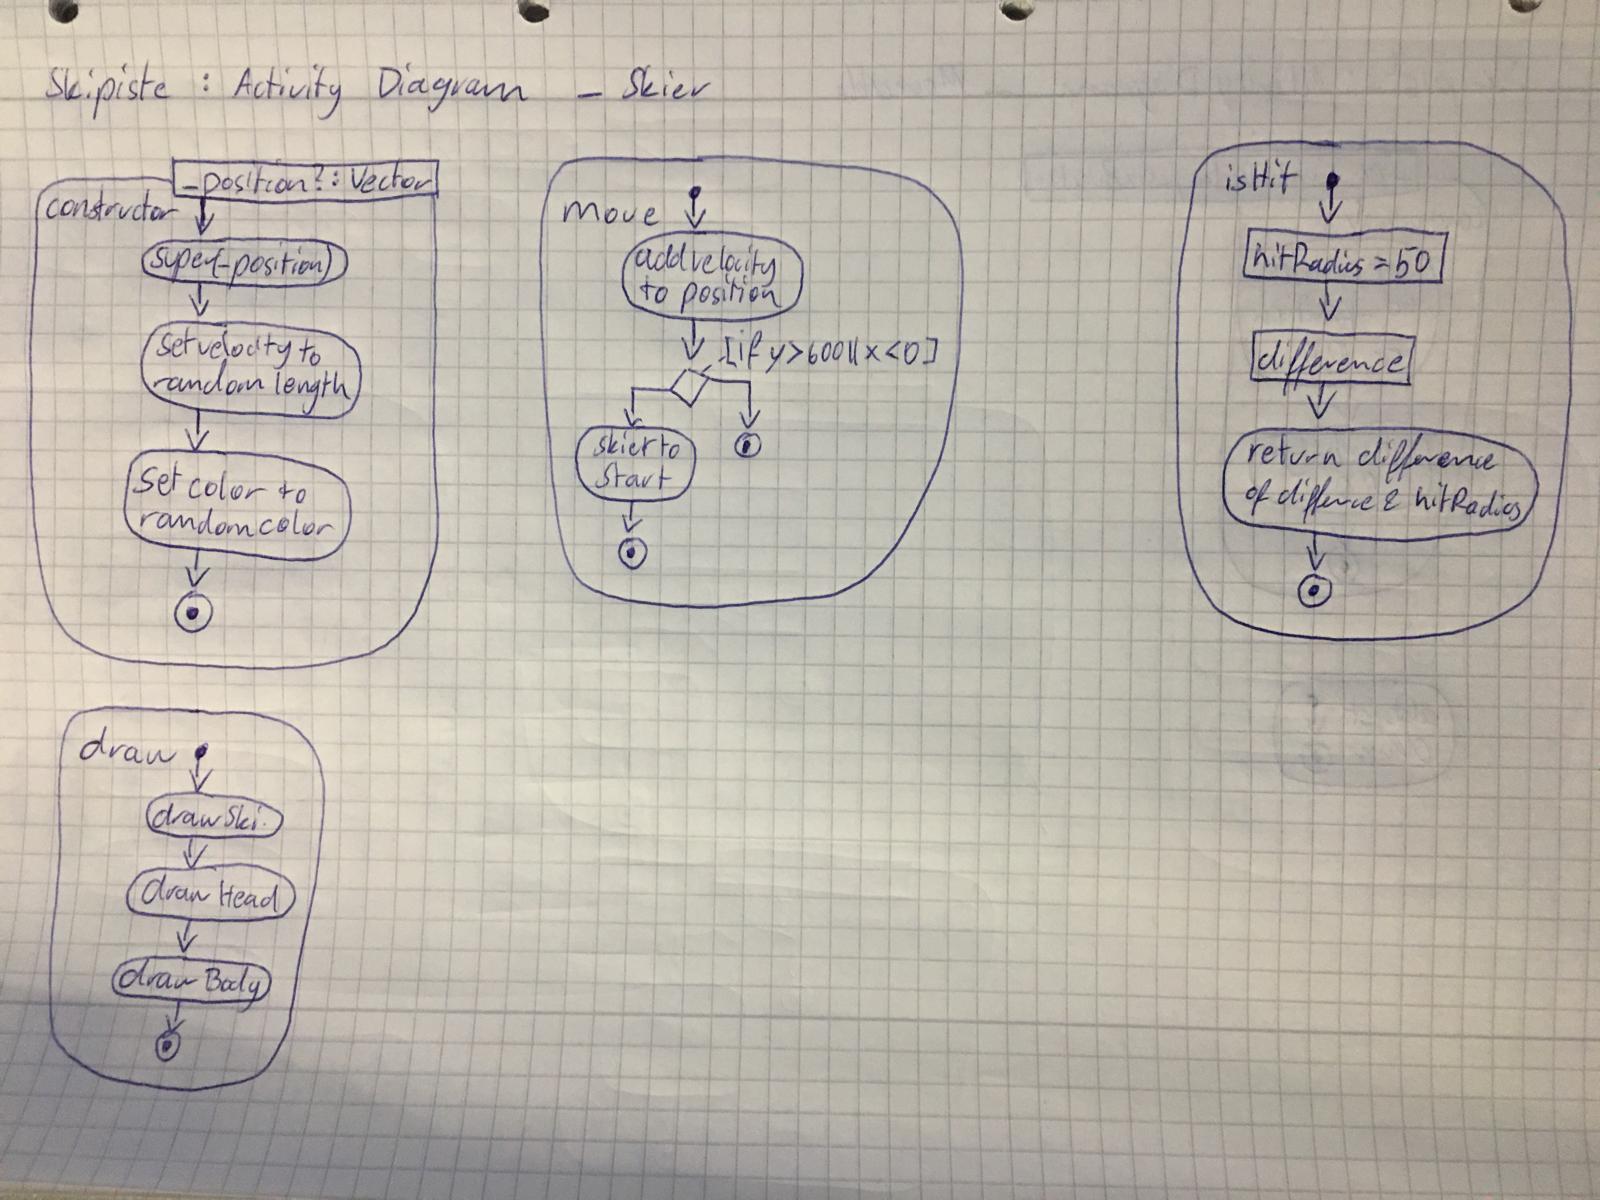 Skipiste : Activity Diagram _ Skier
constructor
_position? : Vector
super(_position)
set velocity to
random length
set color to
random color
move
add velocity
to position
[if y>600 || x<0]
skier to
start
isHit
hitRadius = 50
difference
return difference
of diffence & hitRadius
draw
drawSki
draw Head
draw Body